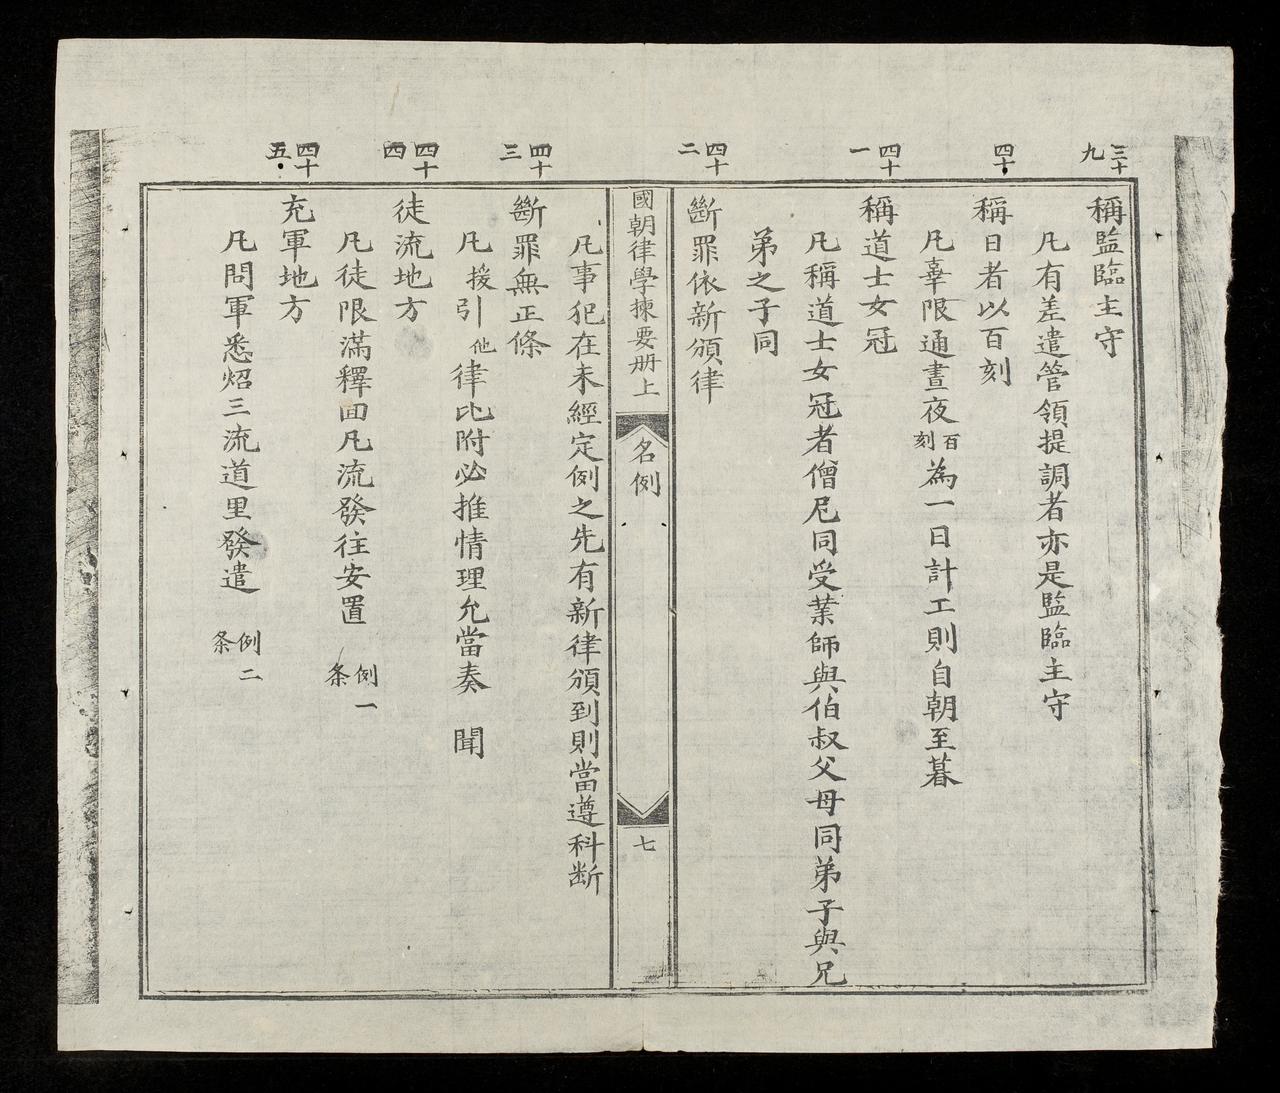 三十九
稱監臨主守
凡有差遣管領提調者亦是監臨主守
四十
稱日者以百刻
凡辜限通晝夜百刻為一日計工則自朝至暮
四十一
稱道士女冠
凡稱道士女冠者僧尼同受業師與伯叔父母同弟子與兄
弟之子同
四十二
斷罪依新頒律
國朝律學揀要册上
名例
七
凡事犯在未經定例之先有新律頒到則當遵科断
四十三
斷罪無正條
凡援引他律比附必推情理允當奏 聞
四十四
徒流地方
凡徒限滿釋回凡流發往安置 例一条
四十五
充軍地方
凡問軍悉炤三流道里發遣 例二条